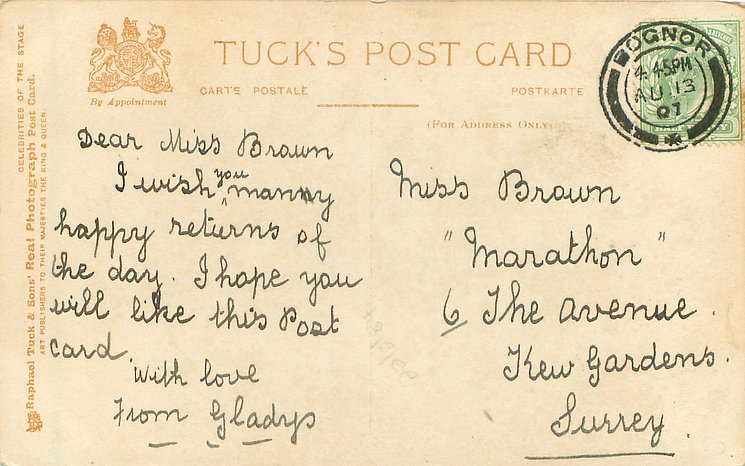 TUCK'S POST CARD
By Appointment
CARTE POSTALE
POSTKARTE
(FOR ADDRESS ONLY)
CELEBRITIES OF THE STAGE
Raphael Tuck & Sons' Real Photograph Post Card.
ART PUBLISHERS TO THEIR MAJESTIES THE KING & QUEEN.
BOGNOR
4 45PM
AU 13
07
Dear Miss Brown
I wish you manny
happy returns of
the day. I hope you
will like this Post
card.
With love
From Gladys
Miss Brown
"Marathon"
6 The avenue.
Kew Gardens.
Surrey.